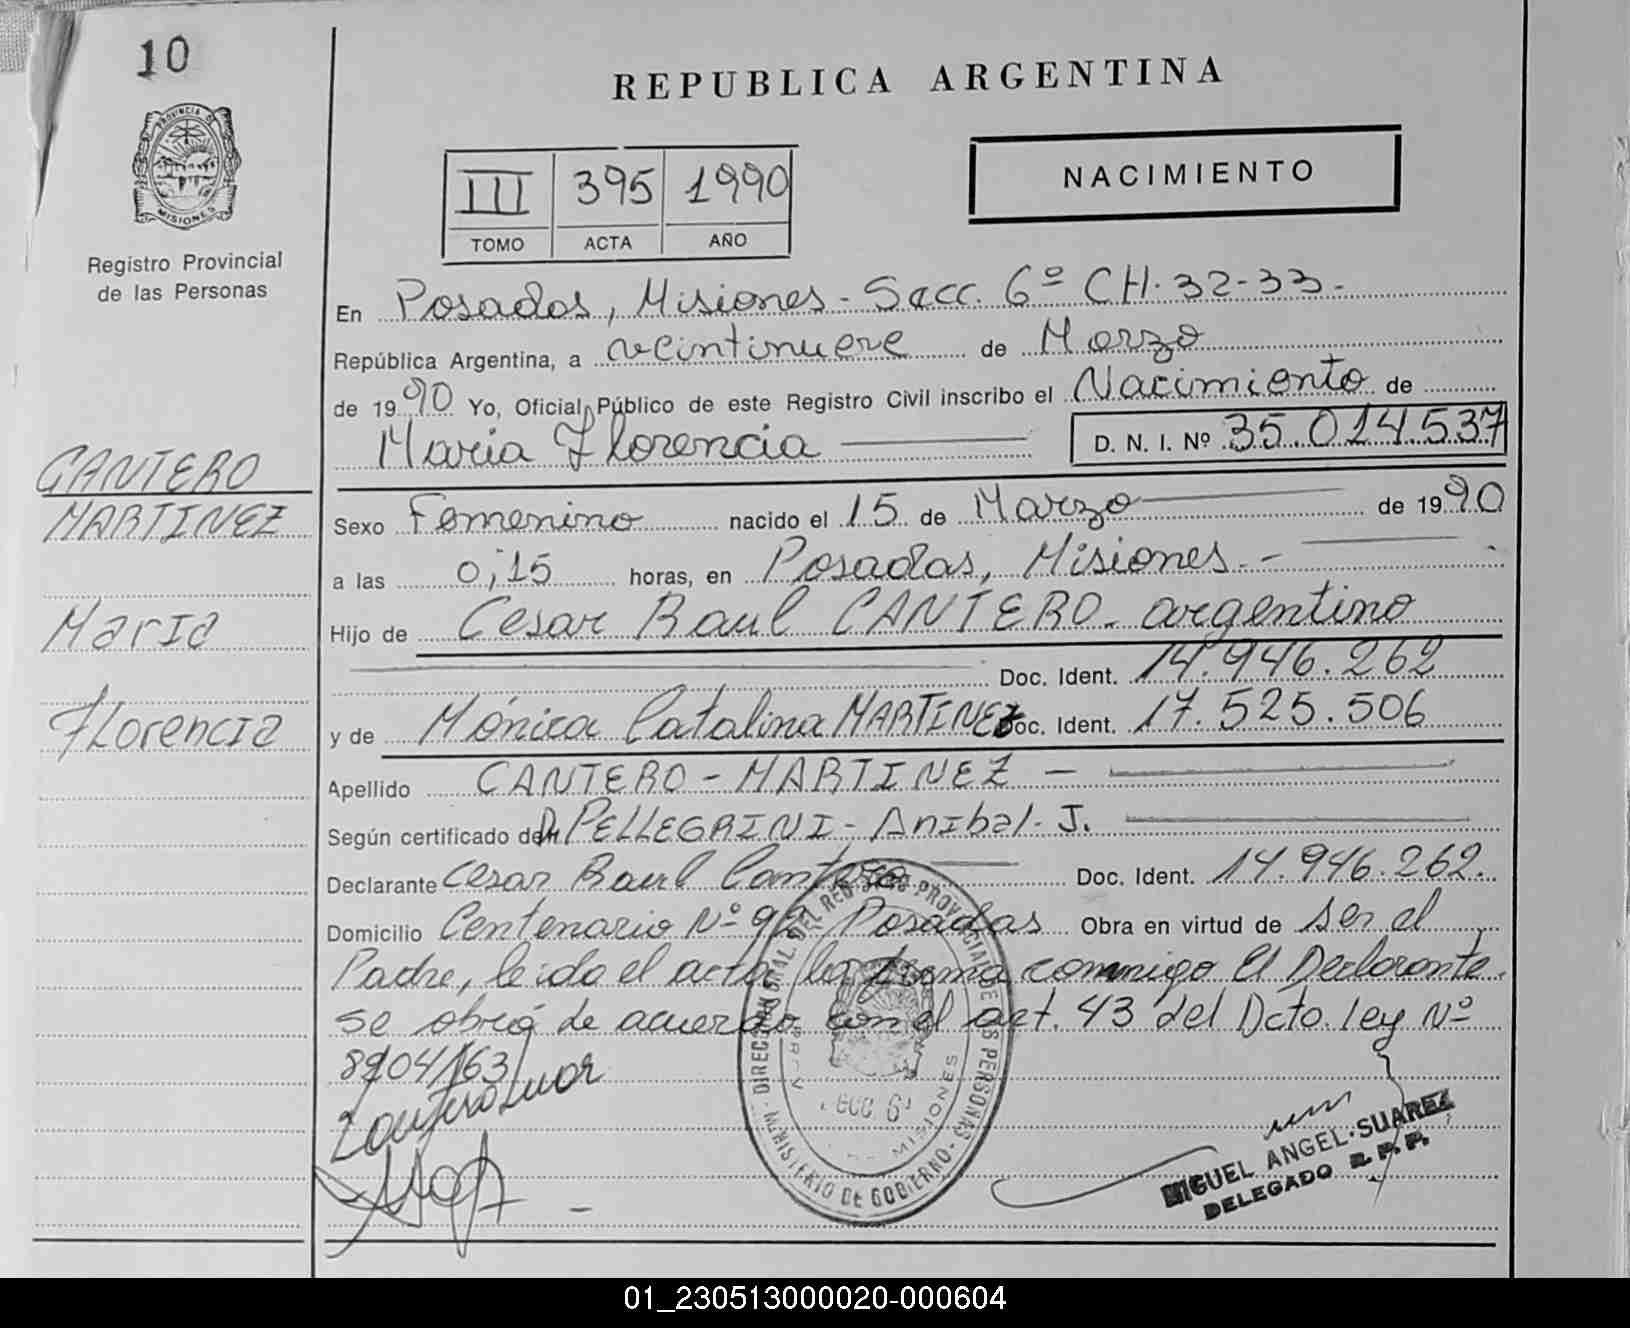 10
REPUBLICA ARGENTINA
PROVINCIA DE
MISIONES
Registro Provincial
de las Personas
III 395 1990
TOMO ACTA AÑO
NACIMIENTO
En Posadas, Misiones - Secc. 6º CH. 32-33.-
República Argentina, a veintinueve de Marzo
de 1990 Yo, Oficial Público de este Registro Civil inscribo el Nacimiento de
María Florencia D. N. I. Nº 35.014.537
CANTERO
MARTINEZ
Maria
Florencia
Sexo Femenino nacido el 15 de Marzo de 1990
a las 0;15 horas, en Posadas, Misiones.-
Hijo de Cesar Raul CANTERO. argentino
Doc. Ident. 14.946.262
y de Mónica Catalina MARTINEZ Doc. Ident. 17.525.506
Apellido CANTERO - MARTINEZ -
Según certificado de Dr PELLEGRINI - Anibal - J.
Declarante Cesar Raul Cantero Doc. Ident. 14.946.262.
Domicilio Centenario Nº 92 Posadas Obra en virtud de ser el
Padre, leído el acta, la firma conmigo El Declarante.
se obró de acuerdo con el art. 43 del Dcto. ley Nº
8204/63
DIRECCION GRAL. DEL REGISTRO PROVINCIAL DE LAS PERSONAS - MINISTERIO DE GOBIERNO -
SECC 6ª
MISIONES
MIGUEL ANGEL SUAREZ
DELEGADO R. P. P.
01_230513000020-000604